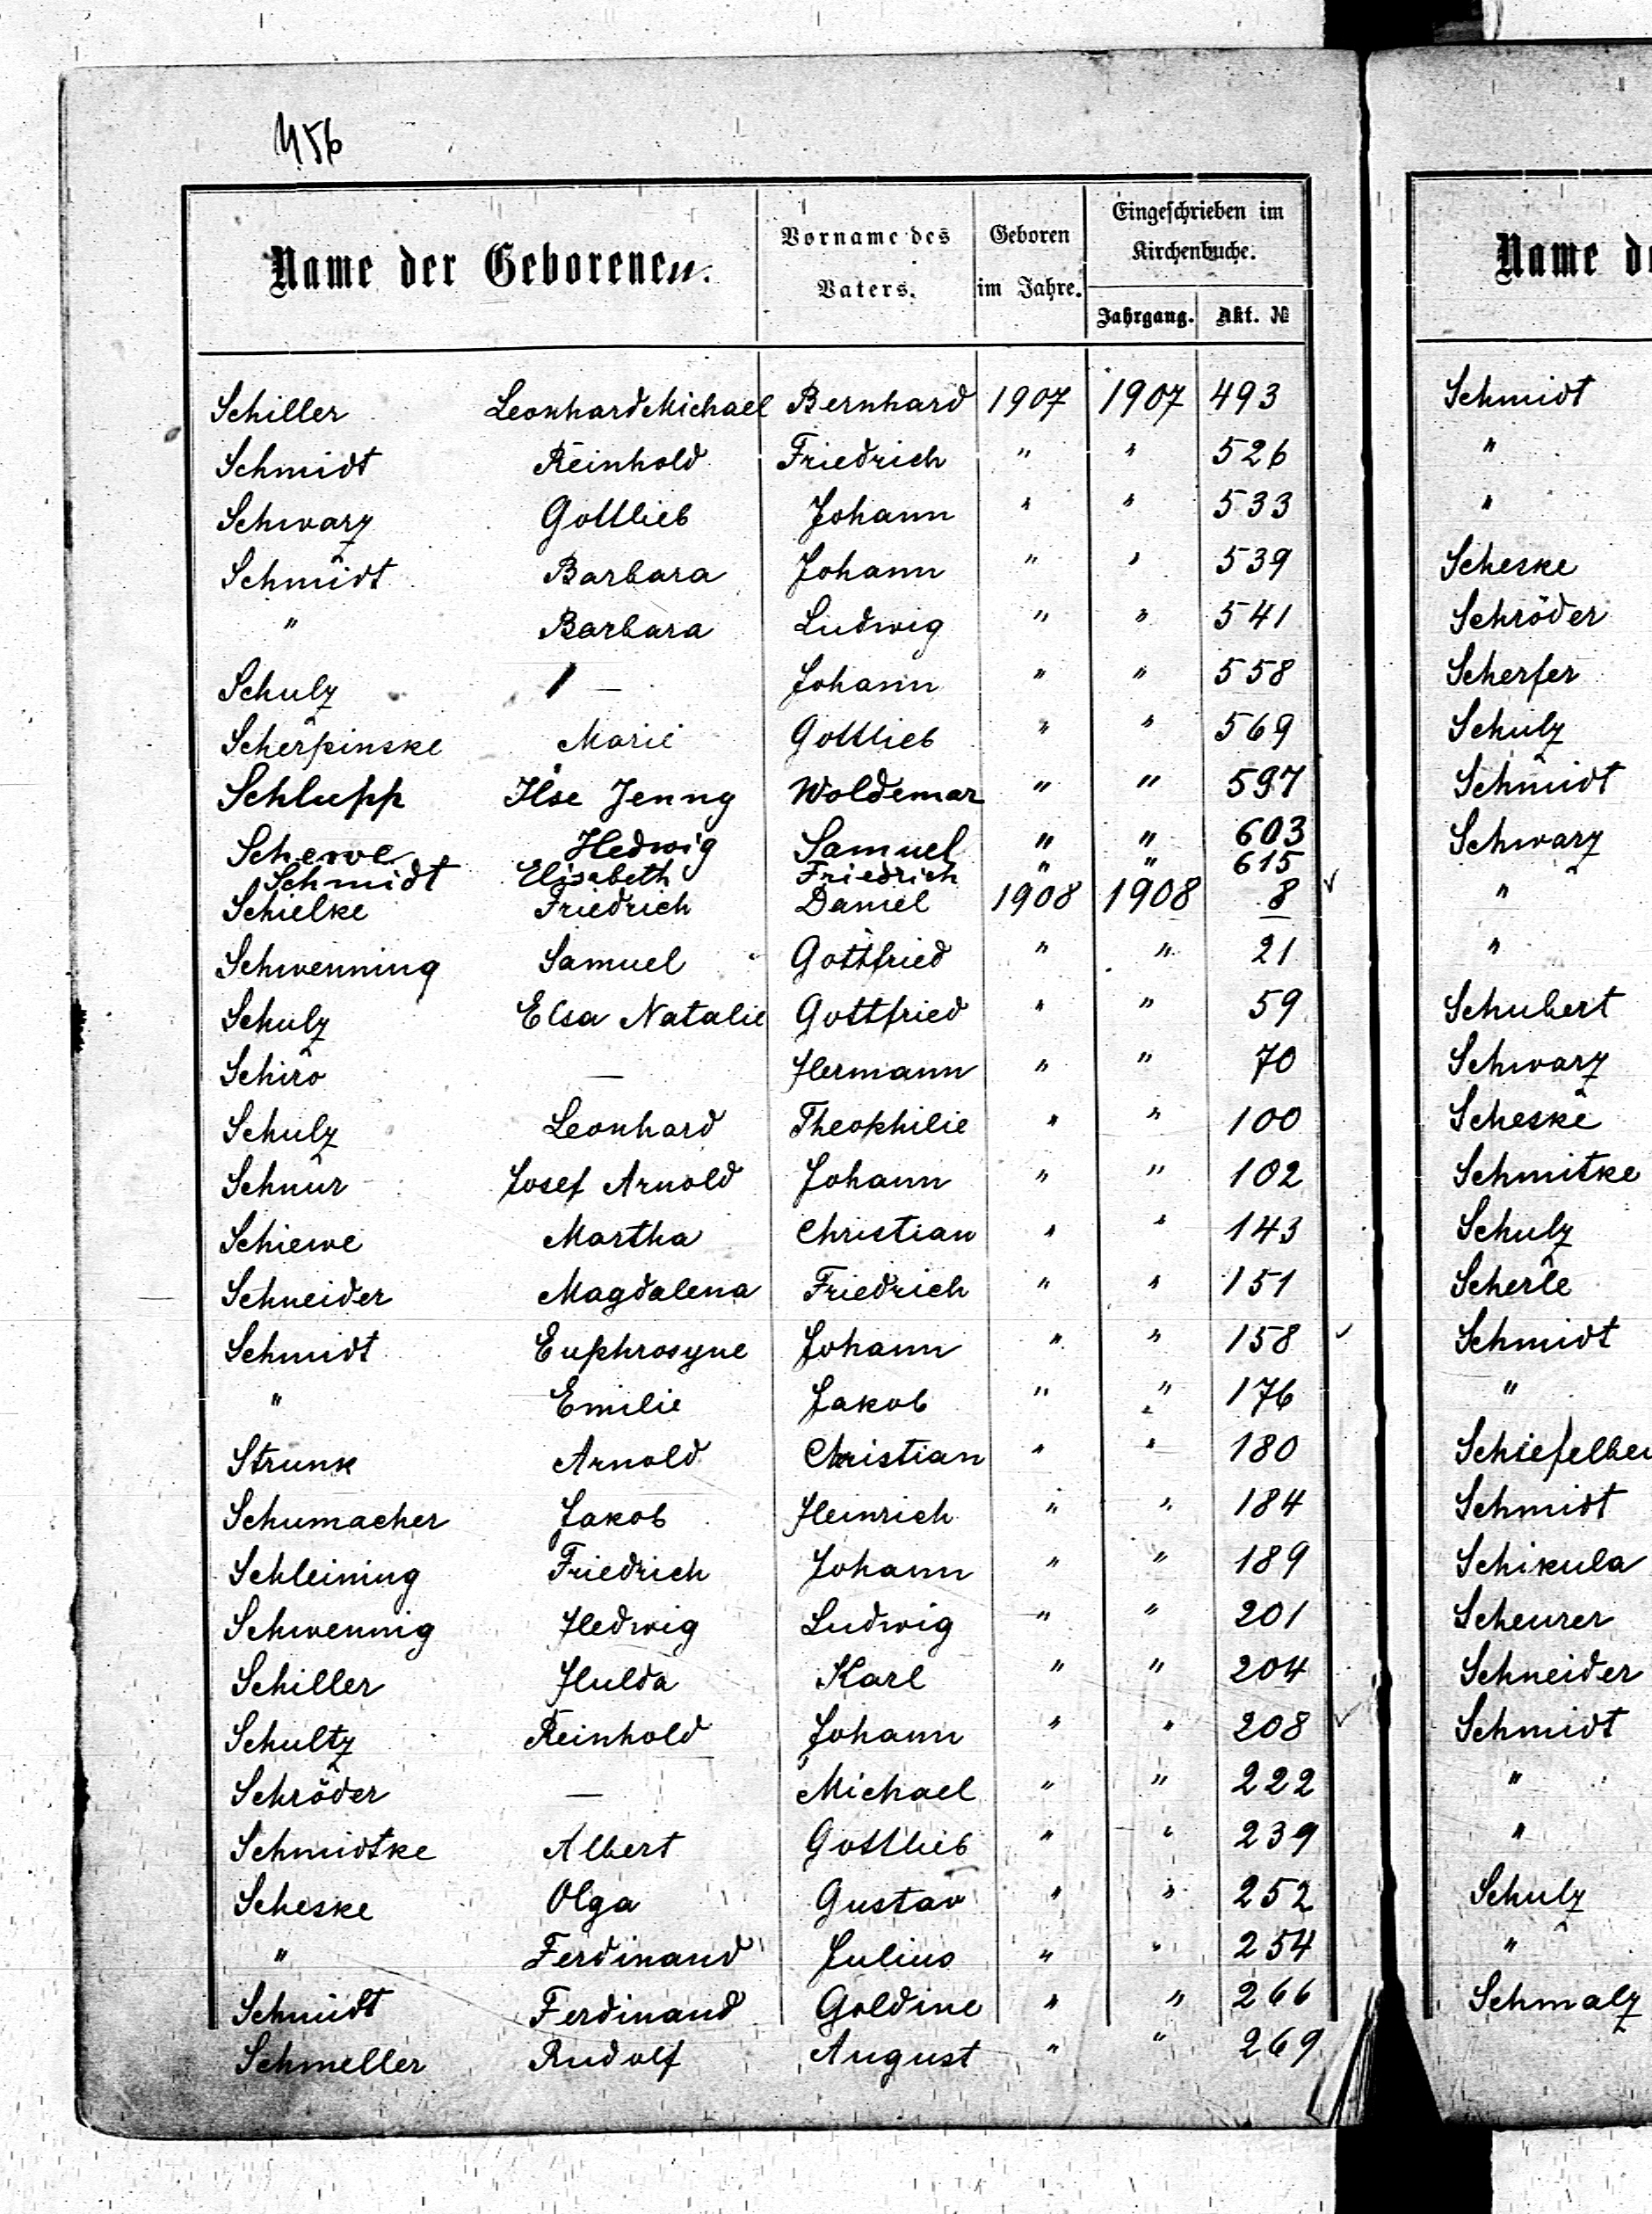 456
Name der Geborenen. Vorname des Vaters. Geboren im Jahre. Eingeschrieben im Kirchenbuche. Jahrgang. Akt. №
Schiller Leonhard Michael Bernhard 1907 1907 493
Schmidt Reinhold Friedrich " " 526
Schwarz Gottlieb Johann " " 533
Schmidt Barbara Johann " " 539
" Barbara Ludwig " " 541
Schulz — Johann " " 558
Scherpinske Marie Gottlieb " " 569
Schlupp Ilse Jenny Woldemar " " 597
Scherve Hedwig Samuel " " 603
Schmidt Elisabeth Friedrich " " 615
Schielke Friedrich Daniel 1908 1908 8
Schwenning Samuel Gottfried " " 21
Schulz Elsa Natalie Gottfried " " 59
Schiro — Hermann " " 70
Schulz Leonhard Theophilie " " 100
Schnur Josef Arnold Johann " " 102
Schiewe Martha Christian " " 143
Schneider Magdalena Friedrich " " 151
Schmidt Euphrosyne Johann " " 158
" Emilie Jakob " " 176
Strunk Arnold Christian " " 180
Schumacher Jakob Heinrich " " 184
Schleining Friedrich Johann " " 189
Schwennig Hedwig Ludwig " " 201
Schiller Hulda Karl " " 204
Schultz Reinhold Johann " " 208
Schröder — Michael " " 222
Schmidtke Albert Gottlieb " " 239
Scheske Olga Gustav " " 252
" Ferdinand Julius " " 254
Schmidt Ferdinand Goldine " " 266
Schmeller Rudolf August " " 269
Name de
Schmidt
"
"
Scheske
Schröder
Scherfer
Schulz
Schmidt
Schwarz
"
"
Schubert
Schwarz
Scheske
Schmitke
Schulz
Scherle
Schmidt
"
Schiefelbei
Schmidt
Schikula
Scheurer
Schneider
Schmidt
"
"
Schulz
"
Schmalz